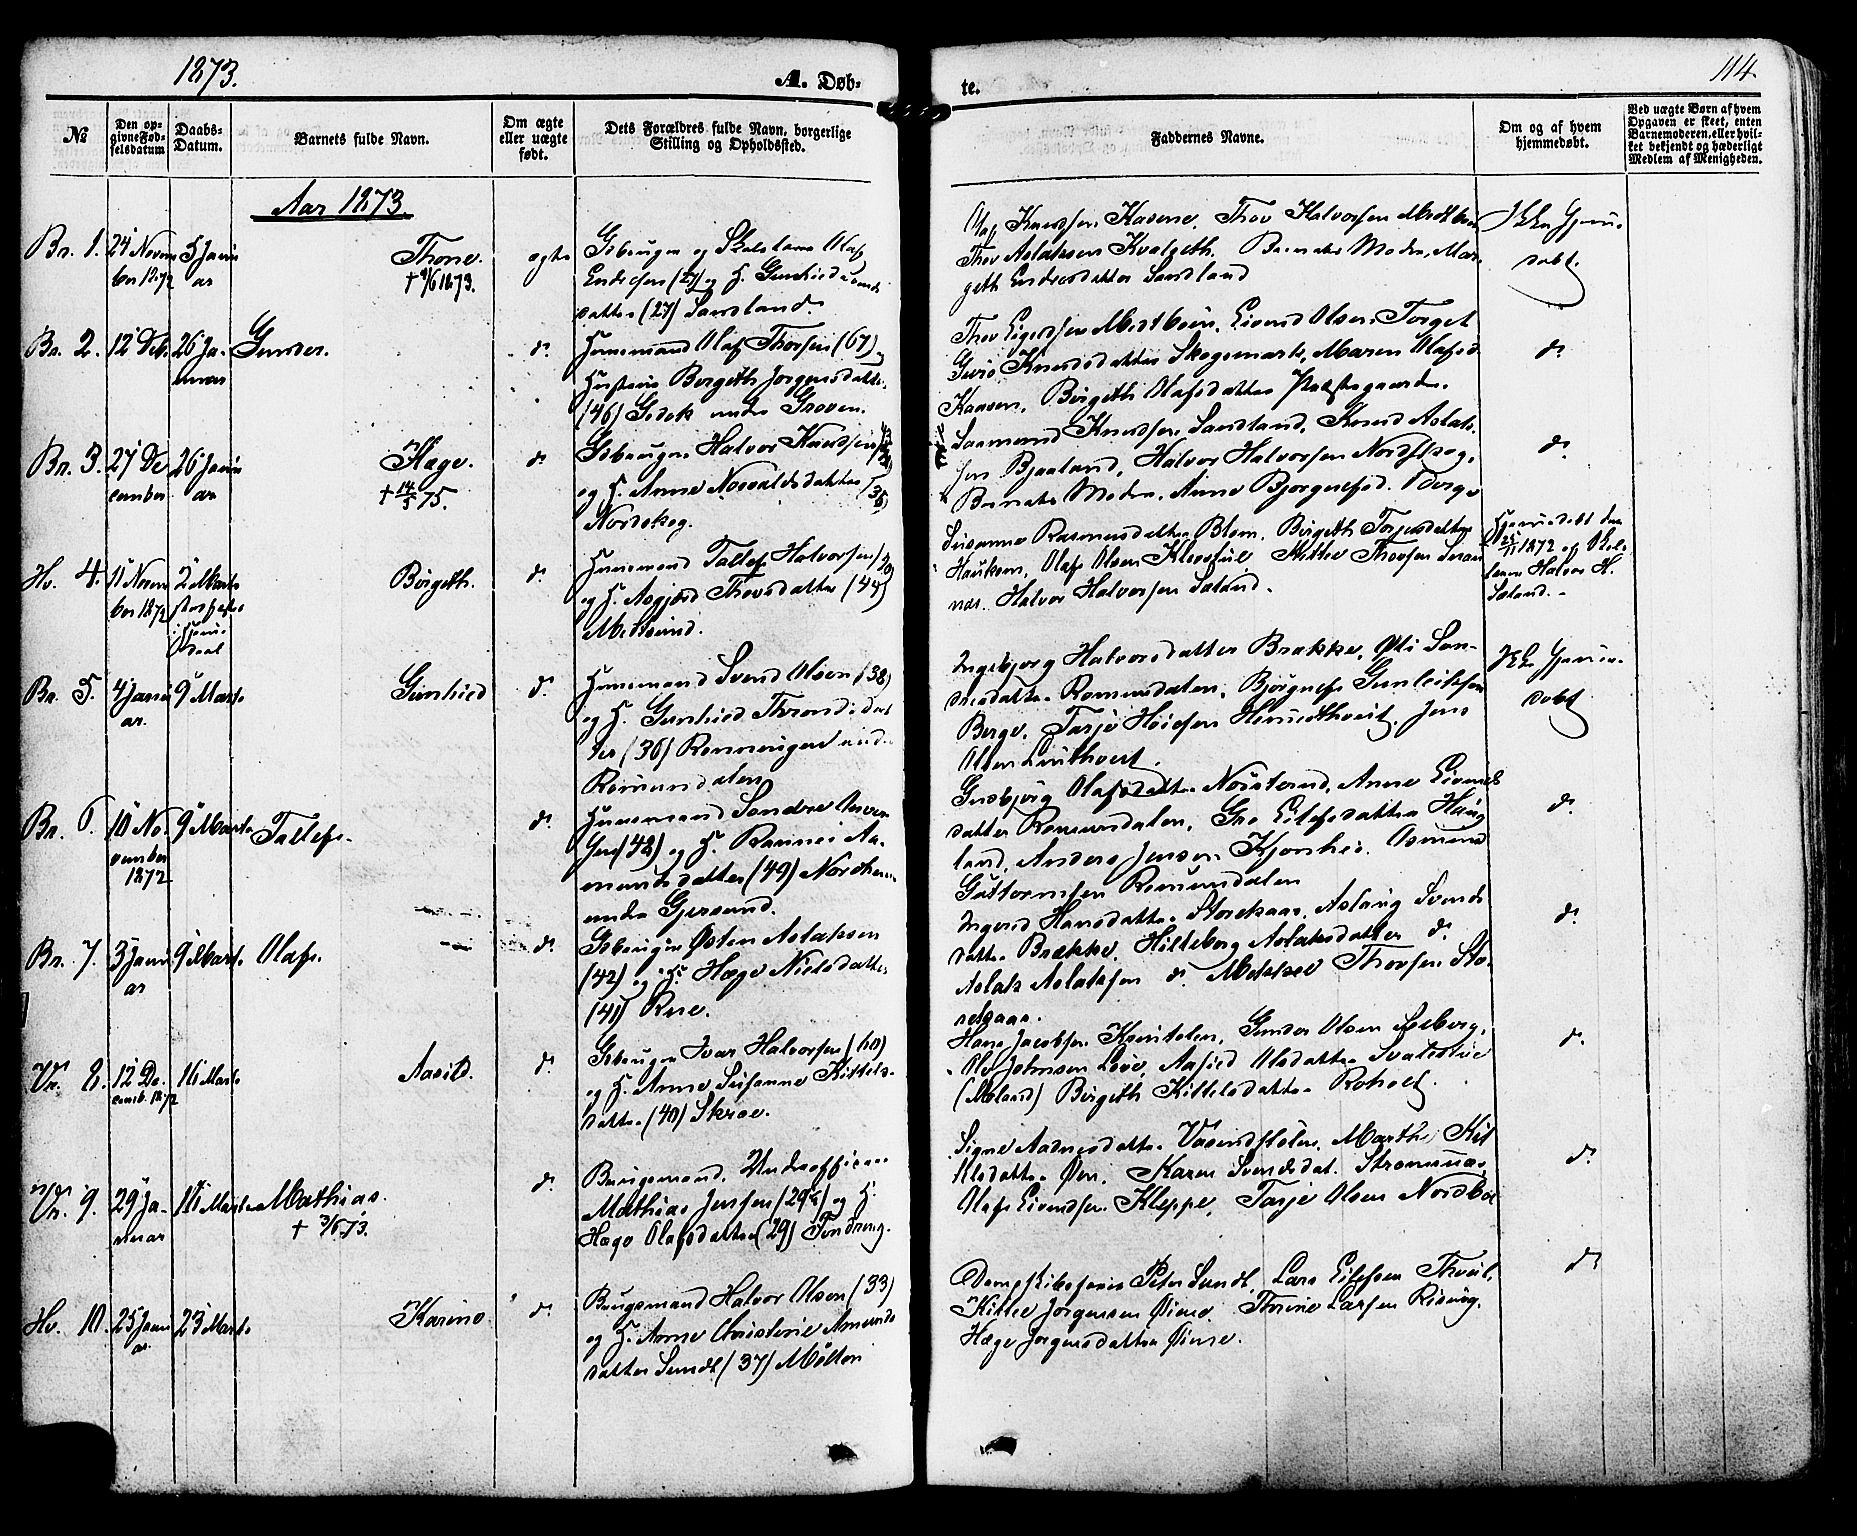 1873.
A. Døb-
te.
114.
№
Den op-
givne Fød-
selsdatum
Daabs-
Datum.
Barnets fulde Navn.
Om ægte
eller uægte
født.
Dets Forældres fulde Navn, borgerlige
Stilling og Opholdssted.
Faddernes Navne.
Om og af hvem
hjemmedøbt.
Ved uægte Børn af hvem
Opgaven er skeet, enten
Barnemoderen, eller hvil-
ket bekjendt og hæderligt
Medlem af Menigheden.
Aar 1873.
Br. 1.
24 Novem
ber 1872
5 Janu
ar
Thone.
† 9/6 1873.
ægte
Gbruger og Skolelærer Olaf
Endresen (27) og H. Gunhild
datter (27) Sandland.
Olaf Knudsen Kasene, Thov Halvorsen Midtbøen
Thov Aslaksen Kvalseth. Barnets Moder, Mar-
geth Endresdatter Sandland
Ikke hjem-
døbt.
Br. 2.
12 Dec.
26 Ja-
nuar
Gunder.
do
Huusmand Olaf Thovsen (67) og
Hustru Bergeth Jørgensdatter
(46) under Groven.
Thov Midtbøen, Eivind Olsen Torget
Guro Knudsdatter Skogsmark, Maren Olafsd.
Kaasen, Børgeth Olafsdatter Præstegaarden.
do
Br. 3.
27 De
cember
26 Janu
ar
Hæge.
† 14/5 75.
do
Gbruger Halvor Knudsen
og H. Anne Nervaldsdatter (36)
Nordskog.
Saamund Knudsen Sandland, Knud Aslak-
sen Bjaaland, Halvor Halvorsen Nordskog,
Barnets Moder, Anne Bjørgulfsd. Berge
do
Hv. 4.
11 Novem
ber 1872
2 Marts
Børgeth.
do
Huusmand Tallef Halvorsen
og H. Asgjerd Thovsdatter (44)
Susanne Rasmusdatter Blom, Børgeth Torjusdatter
Haukom, Olaf Olsen Kittil Thovsen
Halvor Halvorsen Søland.
Hjemmedøbt den
25/11 1872 af Skole-
lærer Halvor H.
Søland.
Br. 5.
4 Janu
ar.
9 Marts
Gunhild
do
Huusmand Svend Olsen (38)
og H. Gunhild Thronds dat
ter (36) Rønningen under
Romunddalen
Ingebjørg Halvorsdatter Brække, Øli Son-
dresdatter Romundalen, Bjørgulf Gunleiksen
Berge, Tarje Høiesen Jens
Olsen Linthveit.
Ikke hjemme-
døbt
Br. 6.
10 No
vember
1872
9 Marts
Tallef.
do
Huusmand Sondre
sen (42) og H. Rannei Aa-
mundsdatter (49)
under Gjersund.
Gunbjørg Olafsdatter Anne Eivinds
datter Romundalen, Gro Eilefsdatter Haug
land, Anders Jensen Kjønhei. Osmund
Guttormsen Romundalen
do
Br. 7.
3 Janu
ar
9 Marts
Olaf.
do
Gbruger Østen Aslaksen
(42) og H. Hæge Nielsdatter
(41) Rue.
Ingerid Hansdatter Storekaas, Aslaug Svends
datter Brække, Hilleborg Aslaksdatter do.
Aslak Aslaksen do. Mikkel Thovsen Sto-
rekaas.
do
Vr. 8.
12 De
cemb. 1872
16 Marts
Aasild.
do
Gbruger Ivar Halvorsen (60)
og H. Anne Susanne Kittels-
datter (40) Skroe.
Hans Jacobsen Gunder Olsen Seeberg,
Ole Johnsen Løve, Aasild Olsdatter
(Moland) Børgeth Kittelsdatter Roholt.
do
Vr. 9.
29 Ja-
nuar
16 Marts
Mathias.
† 3/5 73.
do
Brugsmand, Underofficeer
Mathias Jensen (29) og H.
Hæge Olafsdatter (29)
Signe Aadnesdatter Vasendstølen, Marthe Kit
telsdatter Øen, Karen Svendsdat. Strømnæs,
Olaf Eivindsen Kleppe, Tarje Olsen Nordbø
do
Hv. 10.
25 Janu
ar
23 Marts
Karine
do
Brugsmand Halvor Olsen (33)
og H. Anne Christine Amunds
datter Sundt (37)
Peter Sundt, Lars Eilefsen
Kittel Jørgensen Thrine Larsen
Hæge Jørgensdatter
do